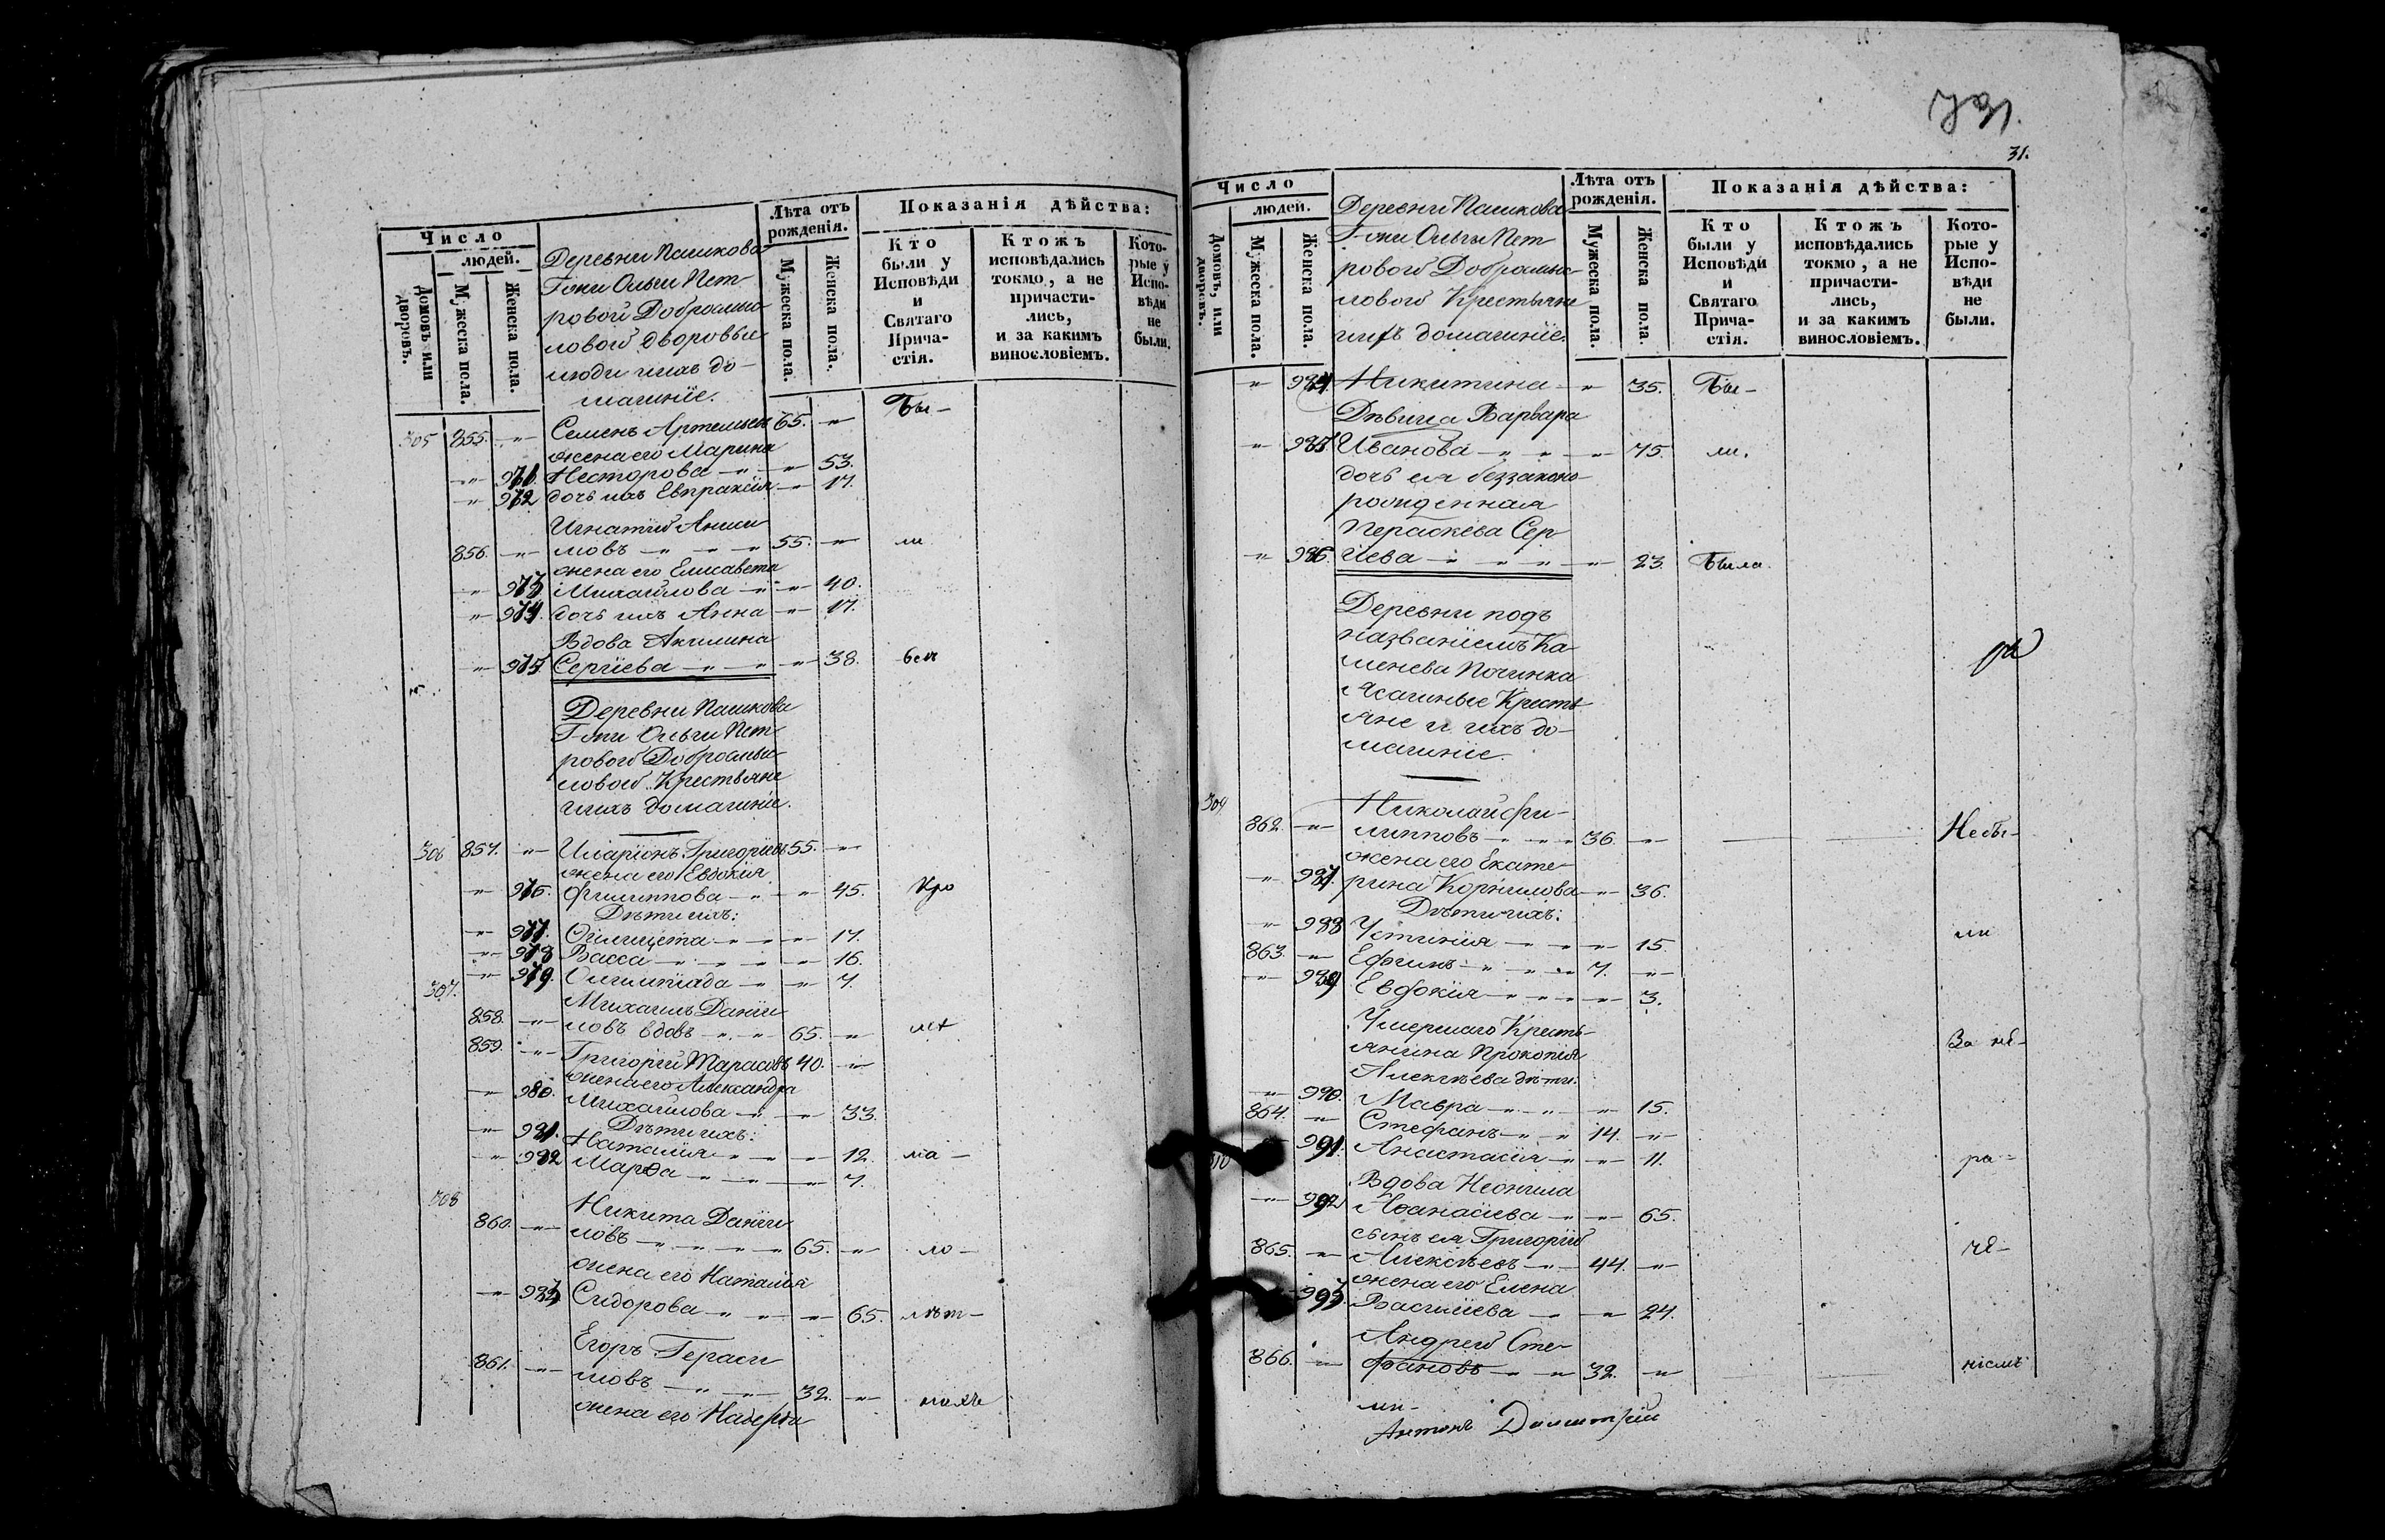 Число
людей.
Домовъ или дворовъ.
Мужеска пола.
Женска пола.
Деревни Пашкова
Г-жи Ольги Пет-
ровой Добросмыс-
ловой дворовые
люди ихъ до-
машніе.
Лѣта отъ рожденія.
Мужеска пола.
Женска пола.
Показанія дѣйства:
Кто были у Исповѣди и Святаго Причастія.
Ктожъ исповѣдались токмо, а не причастились, и за какимъ винословіемъ.
Которые у Исповѣди не были.
305 855. -"- Семенъ Артемьевъ 65. -"- Бы-
жена его Марина
-"- 971. Несторова -"- -"- 53.
-"- 972 дочь ихъ Евпраксія -"- 17.
Игнатій Аниси
856. -"- мовъ -"- -"- 55. -"- ли
жена его Елисавета
-"- 973 Михайлова -"- -"- 40.
-"- 974. дочь ихъ Анна -"- 17.
Вдова Акилина
-"- 975. Сергіева -"- -"- 38.
Деревни Пашкова
Г-жи Ольги Пет-
ровой Добросмыс-
ловой Крестьяне
ихъ домашніе.
306 857. -"- Иларіонъ Григорьевъ 55. -"-
жена его Евдокія
-"- 976. Филиппова -"- -"- 45. Кро
Дѣти ихъ:
-"- 977. Олимпіа -"- -"- 17.
-"- 978 Васса -"- -"- 16.
-"- 979. Олимпіада -"- -"- 7.
307. Михаилъ Дании
858. -"- ловъ вдовъ -"- 65. -"- мѣ
859. -"- Григорій Тарасовъ 40. -"-
жена его Александра
-"- 980. Михайлова -"- -"- 33.
Дѣти ихъ:
-"- 981. Наталія -"- -"- 12. ма-
-"- 982 Марѳа -"- -"- 7.
308 Никита Дании
860. -"- ловъ -"- -"- 65. -"- ло-
жена его Наталья
-"- 983 Сидорова -"- -"- 65. лѣт-
Егоръ Гераси
861. -"- мовъ -"- -"- 32. -"-
жена его Надежда
31.
Число
людей.
Домовъ, или дворовъ.
Мужеска пола.
Женска пола.
Деревни Пашкова
Г-жи Ольги Пет-
ровой Добросмыс-
ловой Крестьяне
ихъ домашніе.
Лѣта отъ рожденія.
Мужеска пола.
Женска пола.
Показанія дѣйства:
Кто были у Исповѣди и Святаго Причастія.
Ктожъ исповѣдались токмо, а не причастились, и за какимъ винословіемъ.
Которые у Исповѣди не были.
-"- 984. Никитина -"- 35. Бы-
Дѣвица Варвара
-"- 985. Иванова -"- -"- 75. ли.
дочь ея беззаконо-
рожденная
Пераскева Сер
-"- 986. гіева -"- -"- 23. Была.
Деревни подъ
названіемъ Ка-
менева Починка
Ясашные Кресть-
яне и ихъ до-
машніе.
309 Николай Фи-
862. -"- липповъ -"- -"- 36. -"- Небы-
жена его Екате-
-"- 987. рина Корнилова -"- 36.
Дѣти ихъ:
-"- 988 Устинія -"- -"- 15. ли
863. -"- Ефимъ -"- -"- 7. -"-
-"- 989 Евдокія -"- -"- 3.
Умершаго Кресть-
янина Прокопія За не-
Алексѣева дѣти:
-"- 990. Мавра -"- -"- 15.
864. -"- Стефанъ -"- -"- 14. -"-
-"- 991. Анастасія -"- -"- 11. ра-
310 Вдова Неонила
-"- 992 Аѳанасіева -"- -"- 65.
сынъ ея Григорій
865. -"- Алексѣевъ -"- 44. -"-
жена его Елена
993. Васильева -"- -"- 24.
Андрей Сте-
866. -"- фановъ -"- -"- 32. -"- ніемъ
Антонъ Димитрій